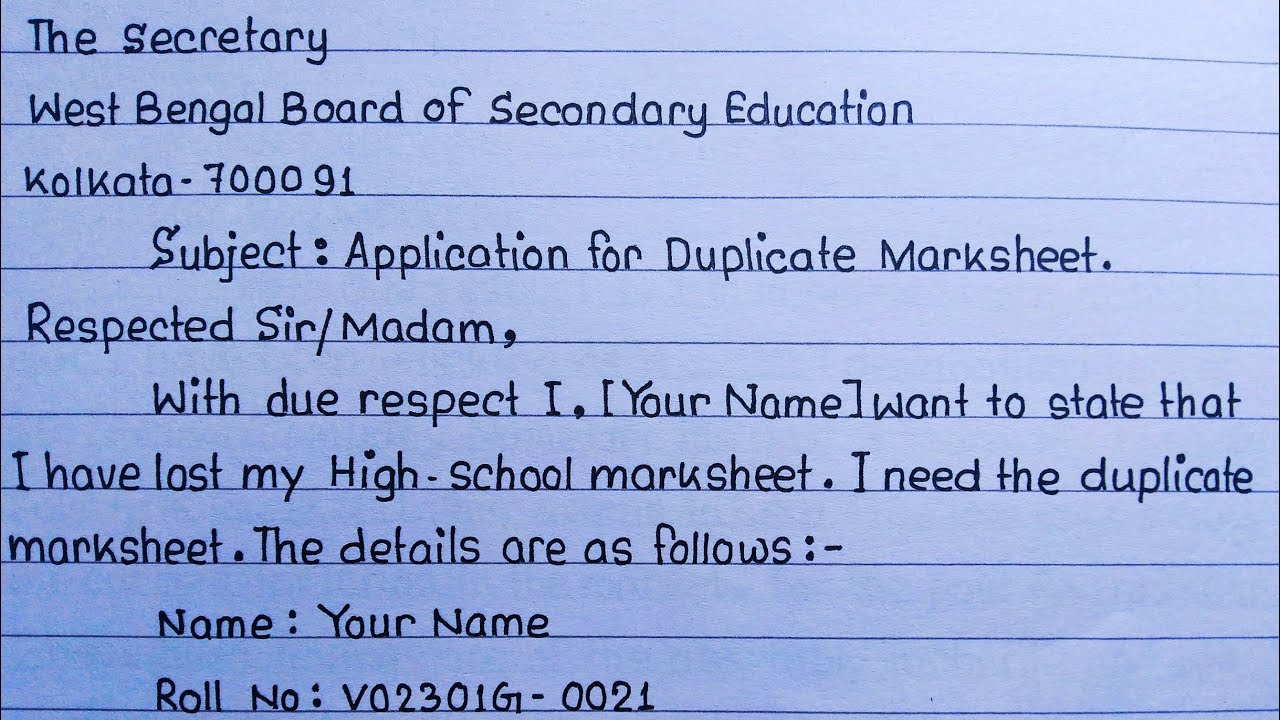 The Secretary
West Bengal Board of Secondary Education
Kolkata - 700091
Subject : Application for Duplicate Marksheet.
Respected Sir/Madam,
With due respect I, [Your Name] want to state that
I have lost my High-school marksheet. I need the duplicate
marksheet. The details are as follows :-
Name : Your Name
Roll No : V02301G - 0021